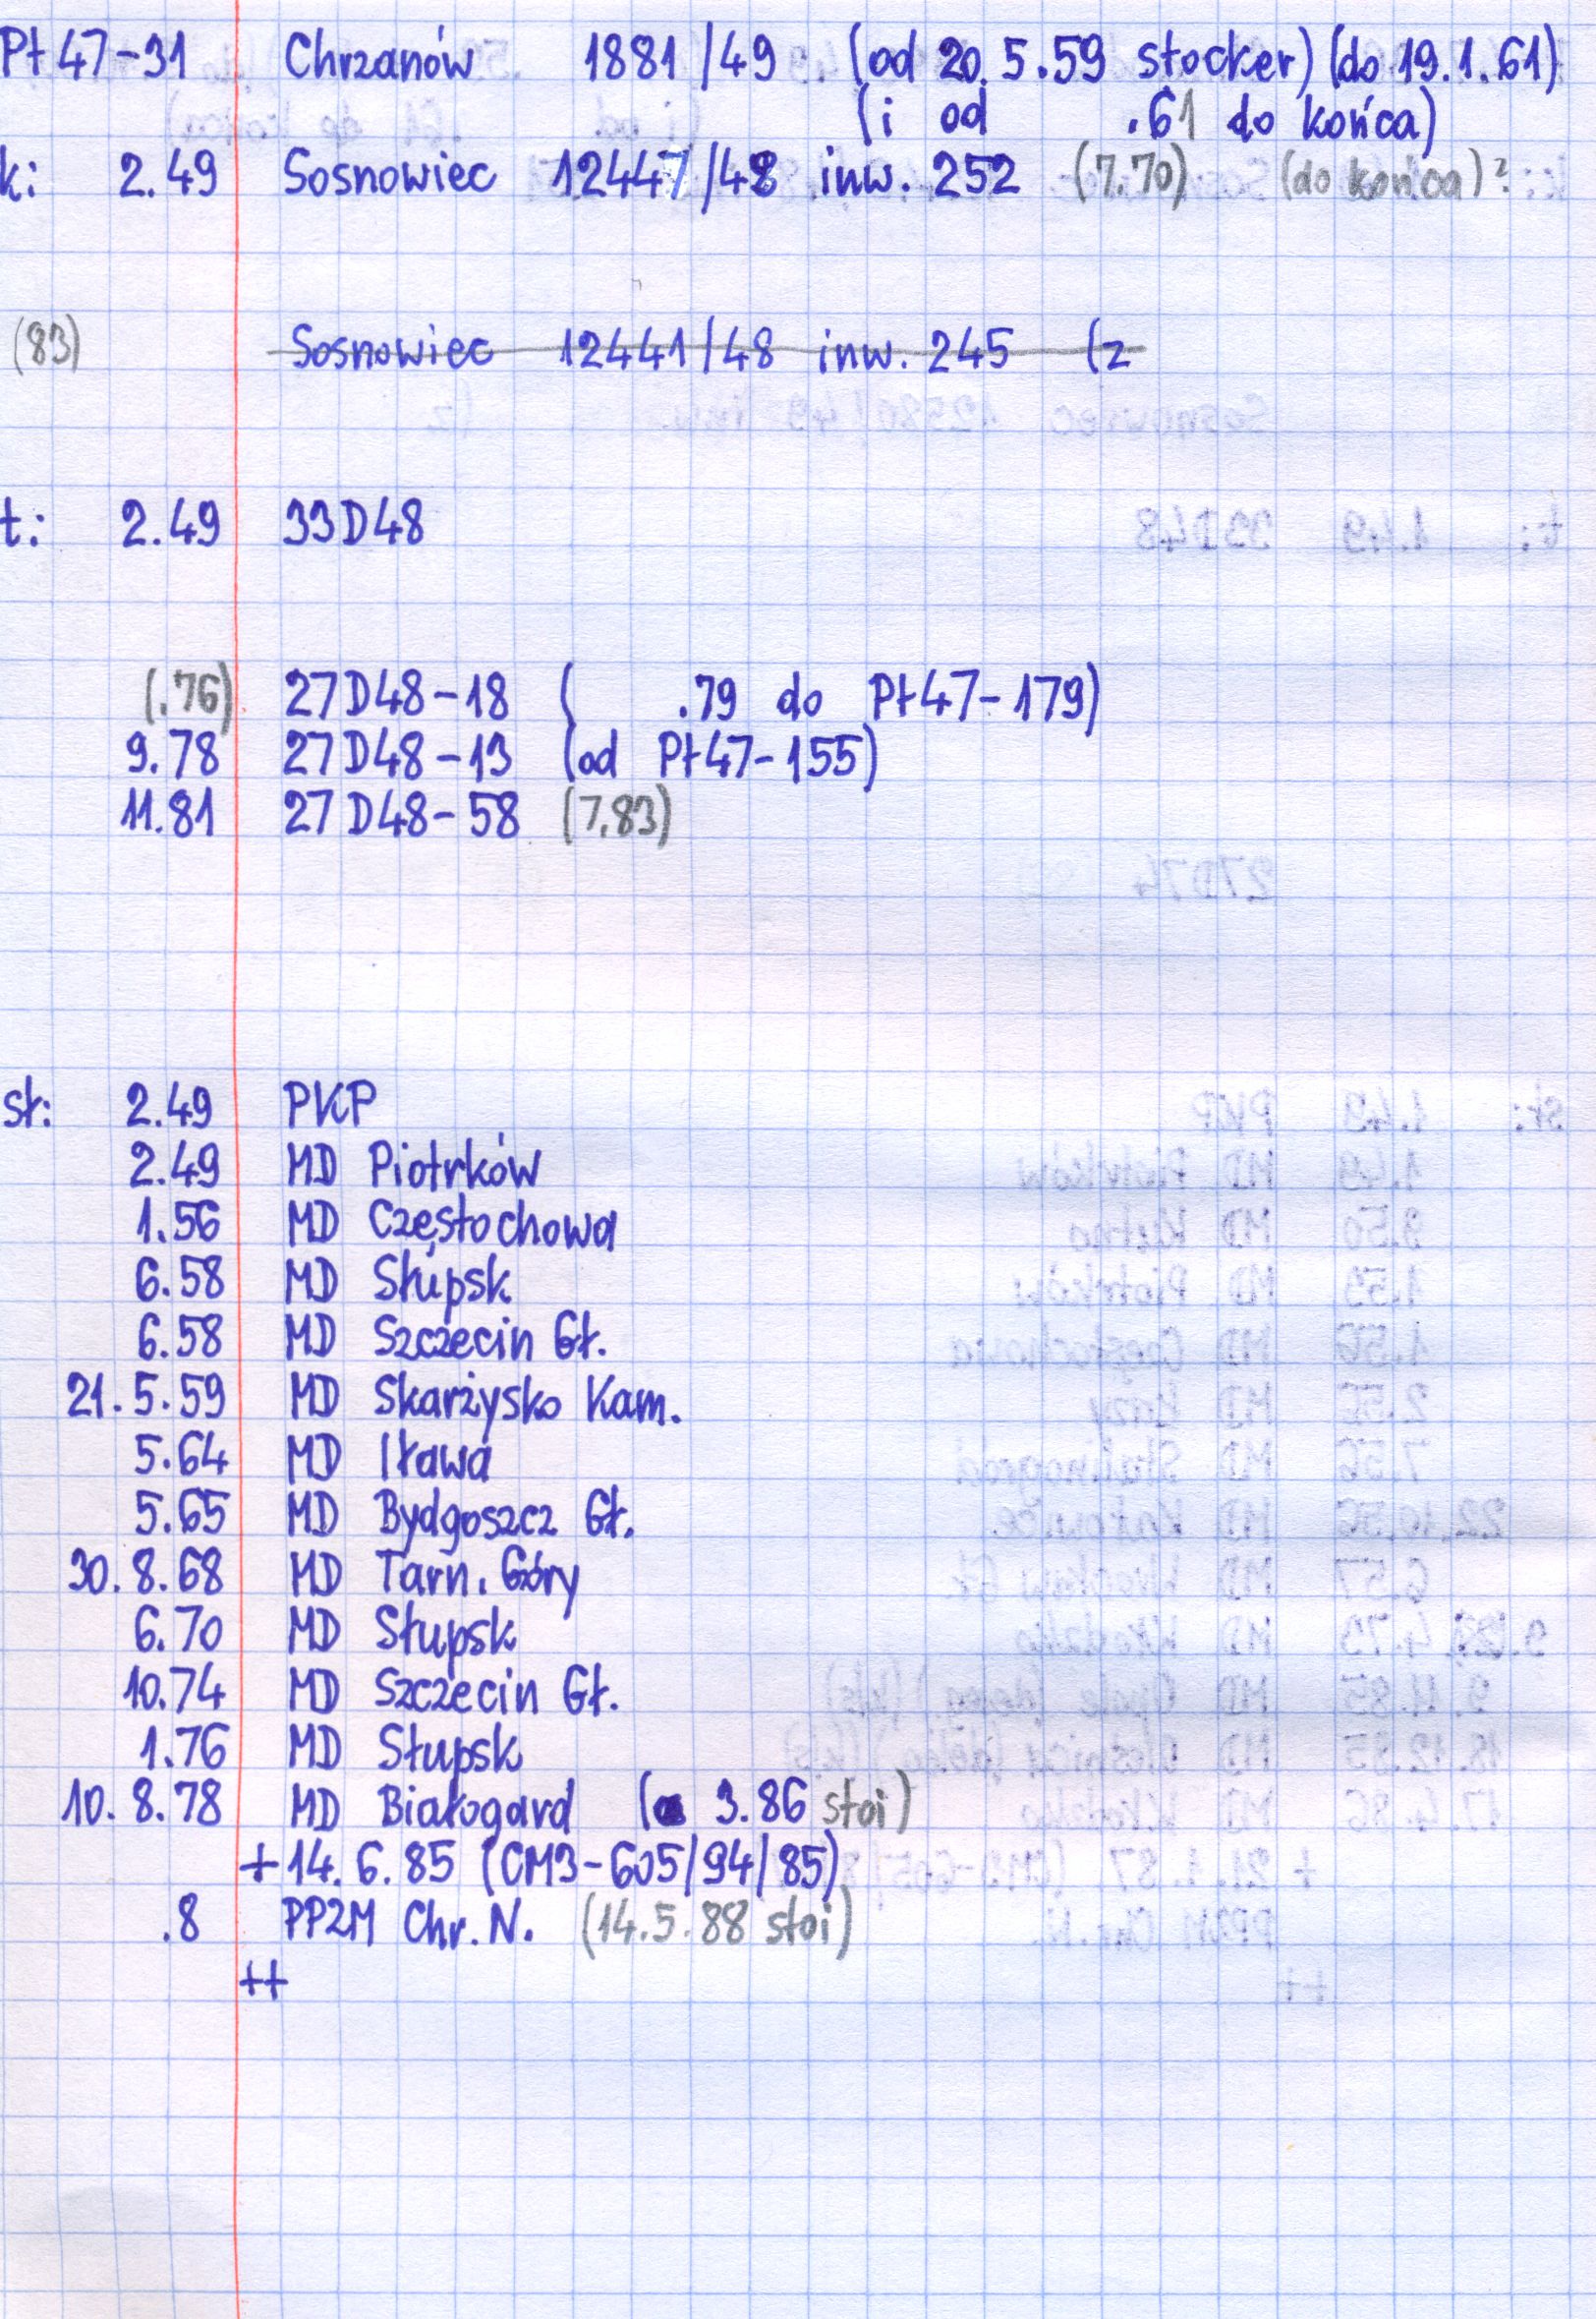 Pt 47-31 Chrzanów 1881/49 (od 20.5.59 stocker) (do 19.1.61)
(i od .61 do końca)
k: 2.49 Sosnowiec 12447/48 inw. 252 (7.70) (do końca)?
(83) Sosnowiec 12441/48 inw. 245 (z
t: 2.49 33D48
(.76) 27D48-18 ( .79 do Pt47-179)
9.78 27D48-13 (od Pt47-155)
11.81 27D48-58 (7.83)
st: 2.49 PKP
2.49 MD Piotrków
1.56 MD Częstochowa
6.58 MD Słupsk
6.58 MD Szczecin Gł.
21.5.59 MD Skarżysko Kam.
5.64 MD Iława
5.65 MD Bydgoszcz Gł.
30.8.68 MD Tarn. Góry
6.70 MD Słupsk
10.74 MD Szczecin Gł.
1.76 MD Słupsk
10.8.78 MD Białogard ( 3.86 stoi)
+14.6.85 (CM3-605/94/85)
.8 PP2M Chr. N. (14.5.88 stoi)
++